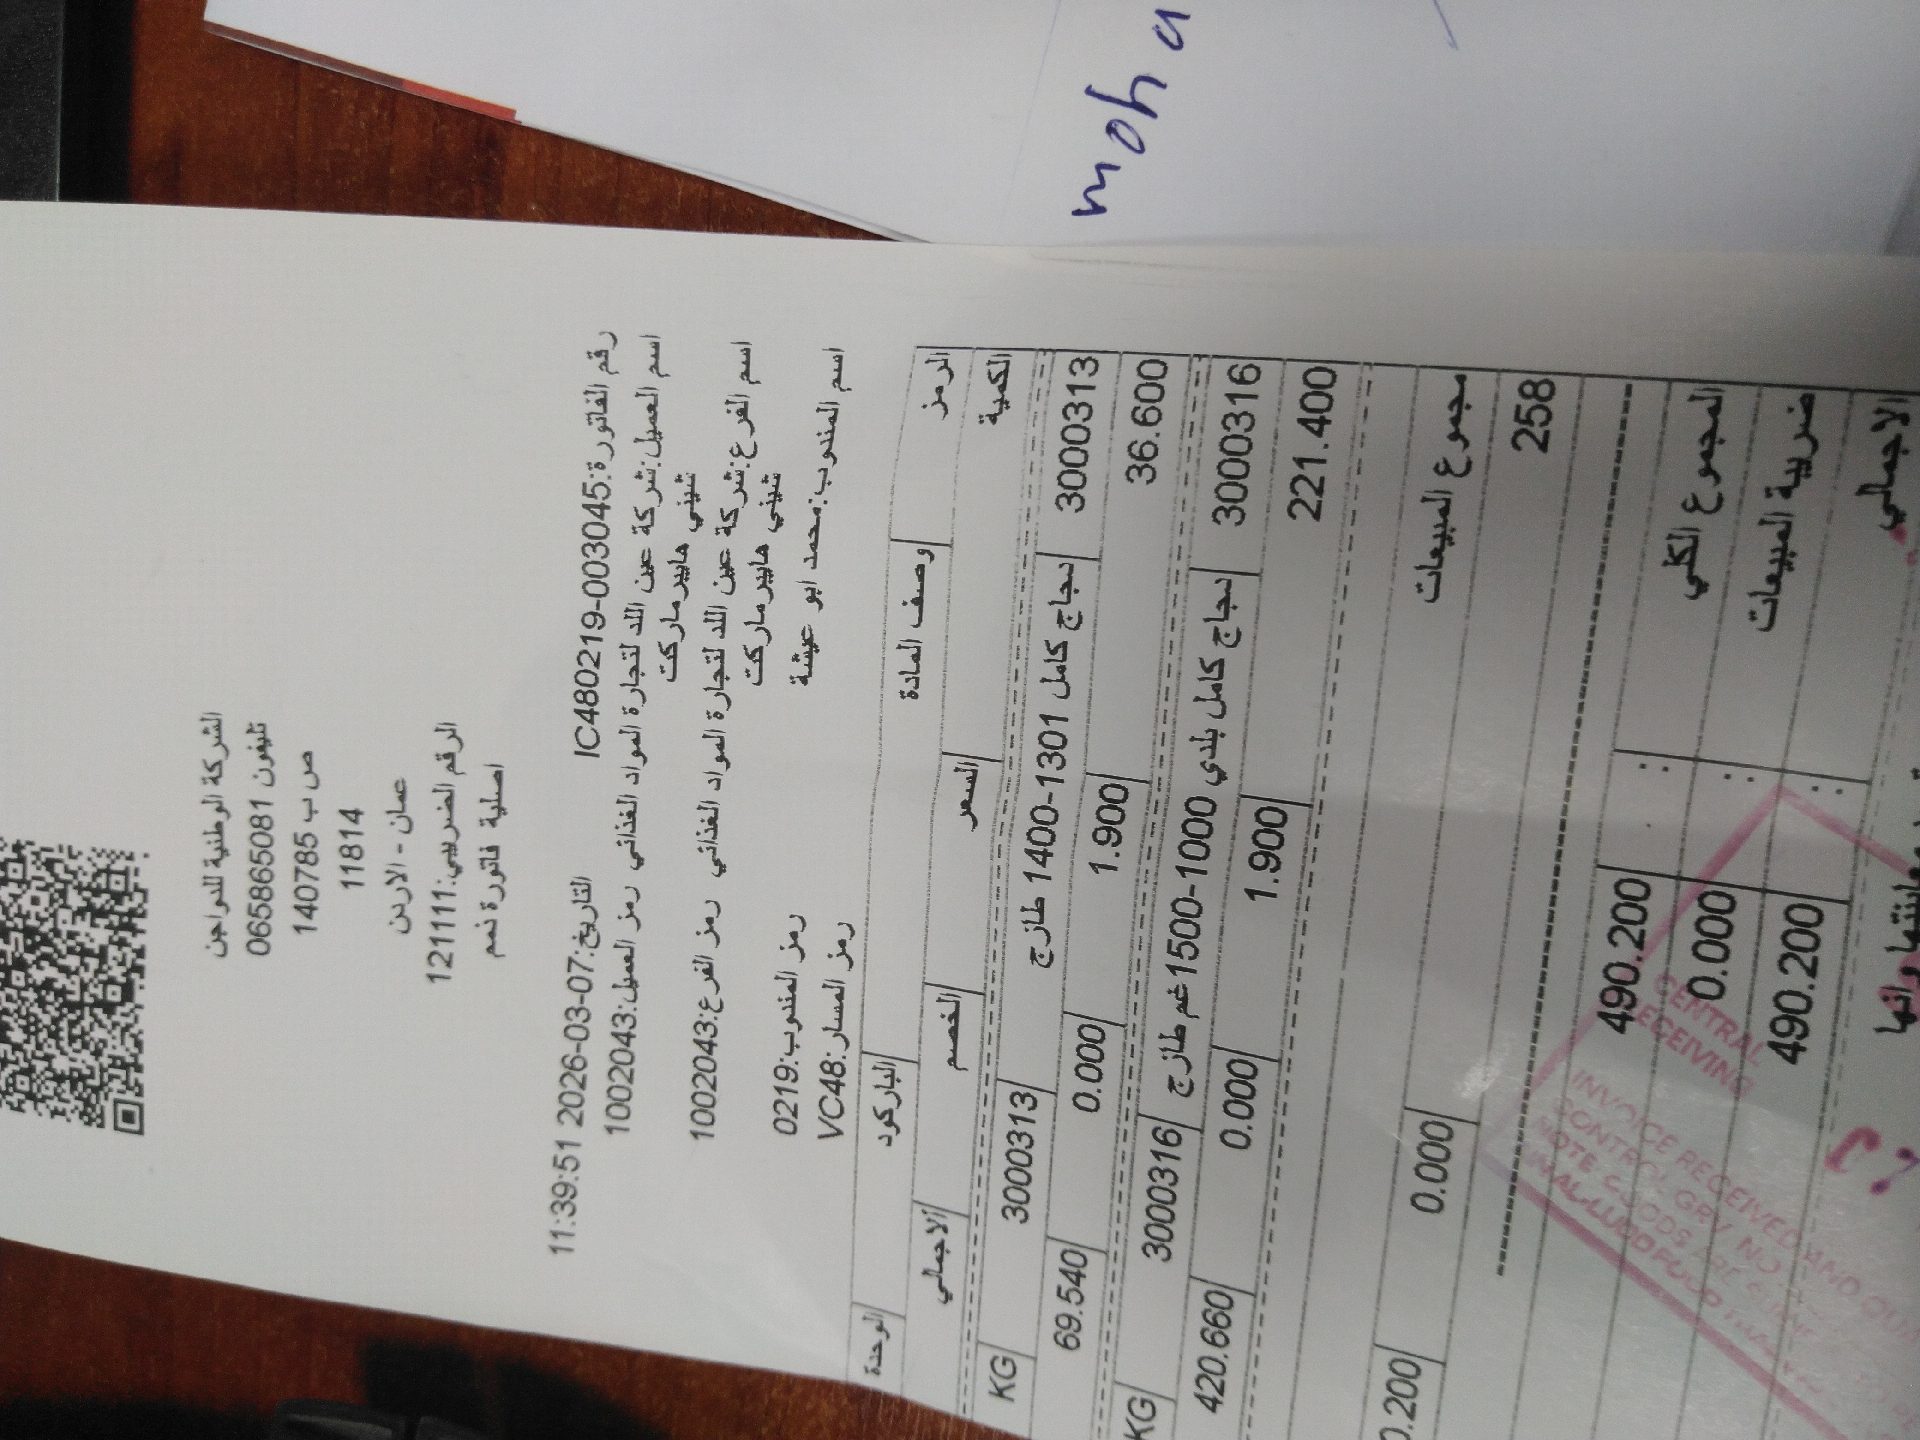 moha
الشركة الوطنية للدواجن
تليفون 065865081
ص ب 140785
11814
عمان - الاردن
الرقم الضريبي:121111
اصلية فاتورة نمم
رقم الفاتورة:IC480219-003045 التاريخ:07-03-2026 11:39:51
اسم العميل:شركة عين اللد لتجارة المواد الغذائي رمز العميل:1002043
ثيني هايبرماركت
اسم الفرع:شركة عين اللد لتجارة المواد الغذائي رمز الفرع:1002043
ثيني هايبرماركت
اسم المندوب:محمد ابو عيشة رمز المندوب:0219
رمز المسار:VC48
الرمز وصف المادة الباركود الوحدة
الكمية السعر الخصم الاجمالي
3000313 دجاج كامل 1301-1400 طازج 3000313 KG
36.600 1.900 0.000 69.540
3000316 دجاج كامل بلدي 1000-1500غم طازج 3000316 KG
221.400 1.900 0.000 420.660
مجموع المبيعات 0.000 0.200
258
المجموع الكلي : 490.200
ضريبة المبيعات : 0.000
الاجمالي : 490.200
CENTRAL
RECEIVING
INVOICE RECEIVED AND
CONTROL GRV NO
NOTE GOODS ARE
IN AL-LUDD FOOD